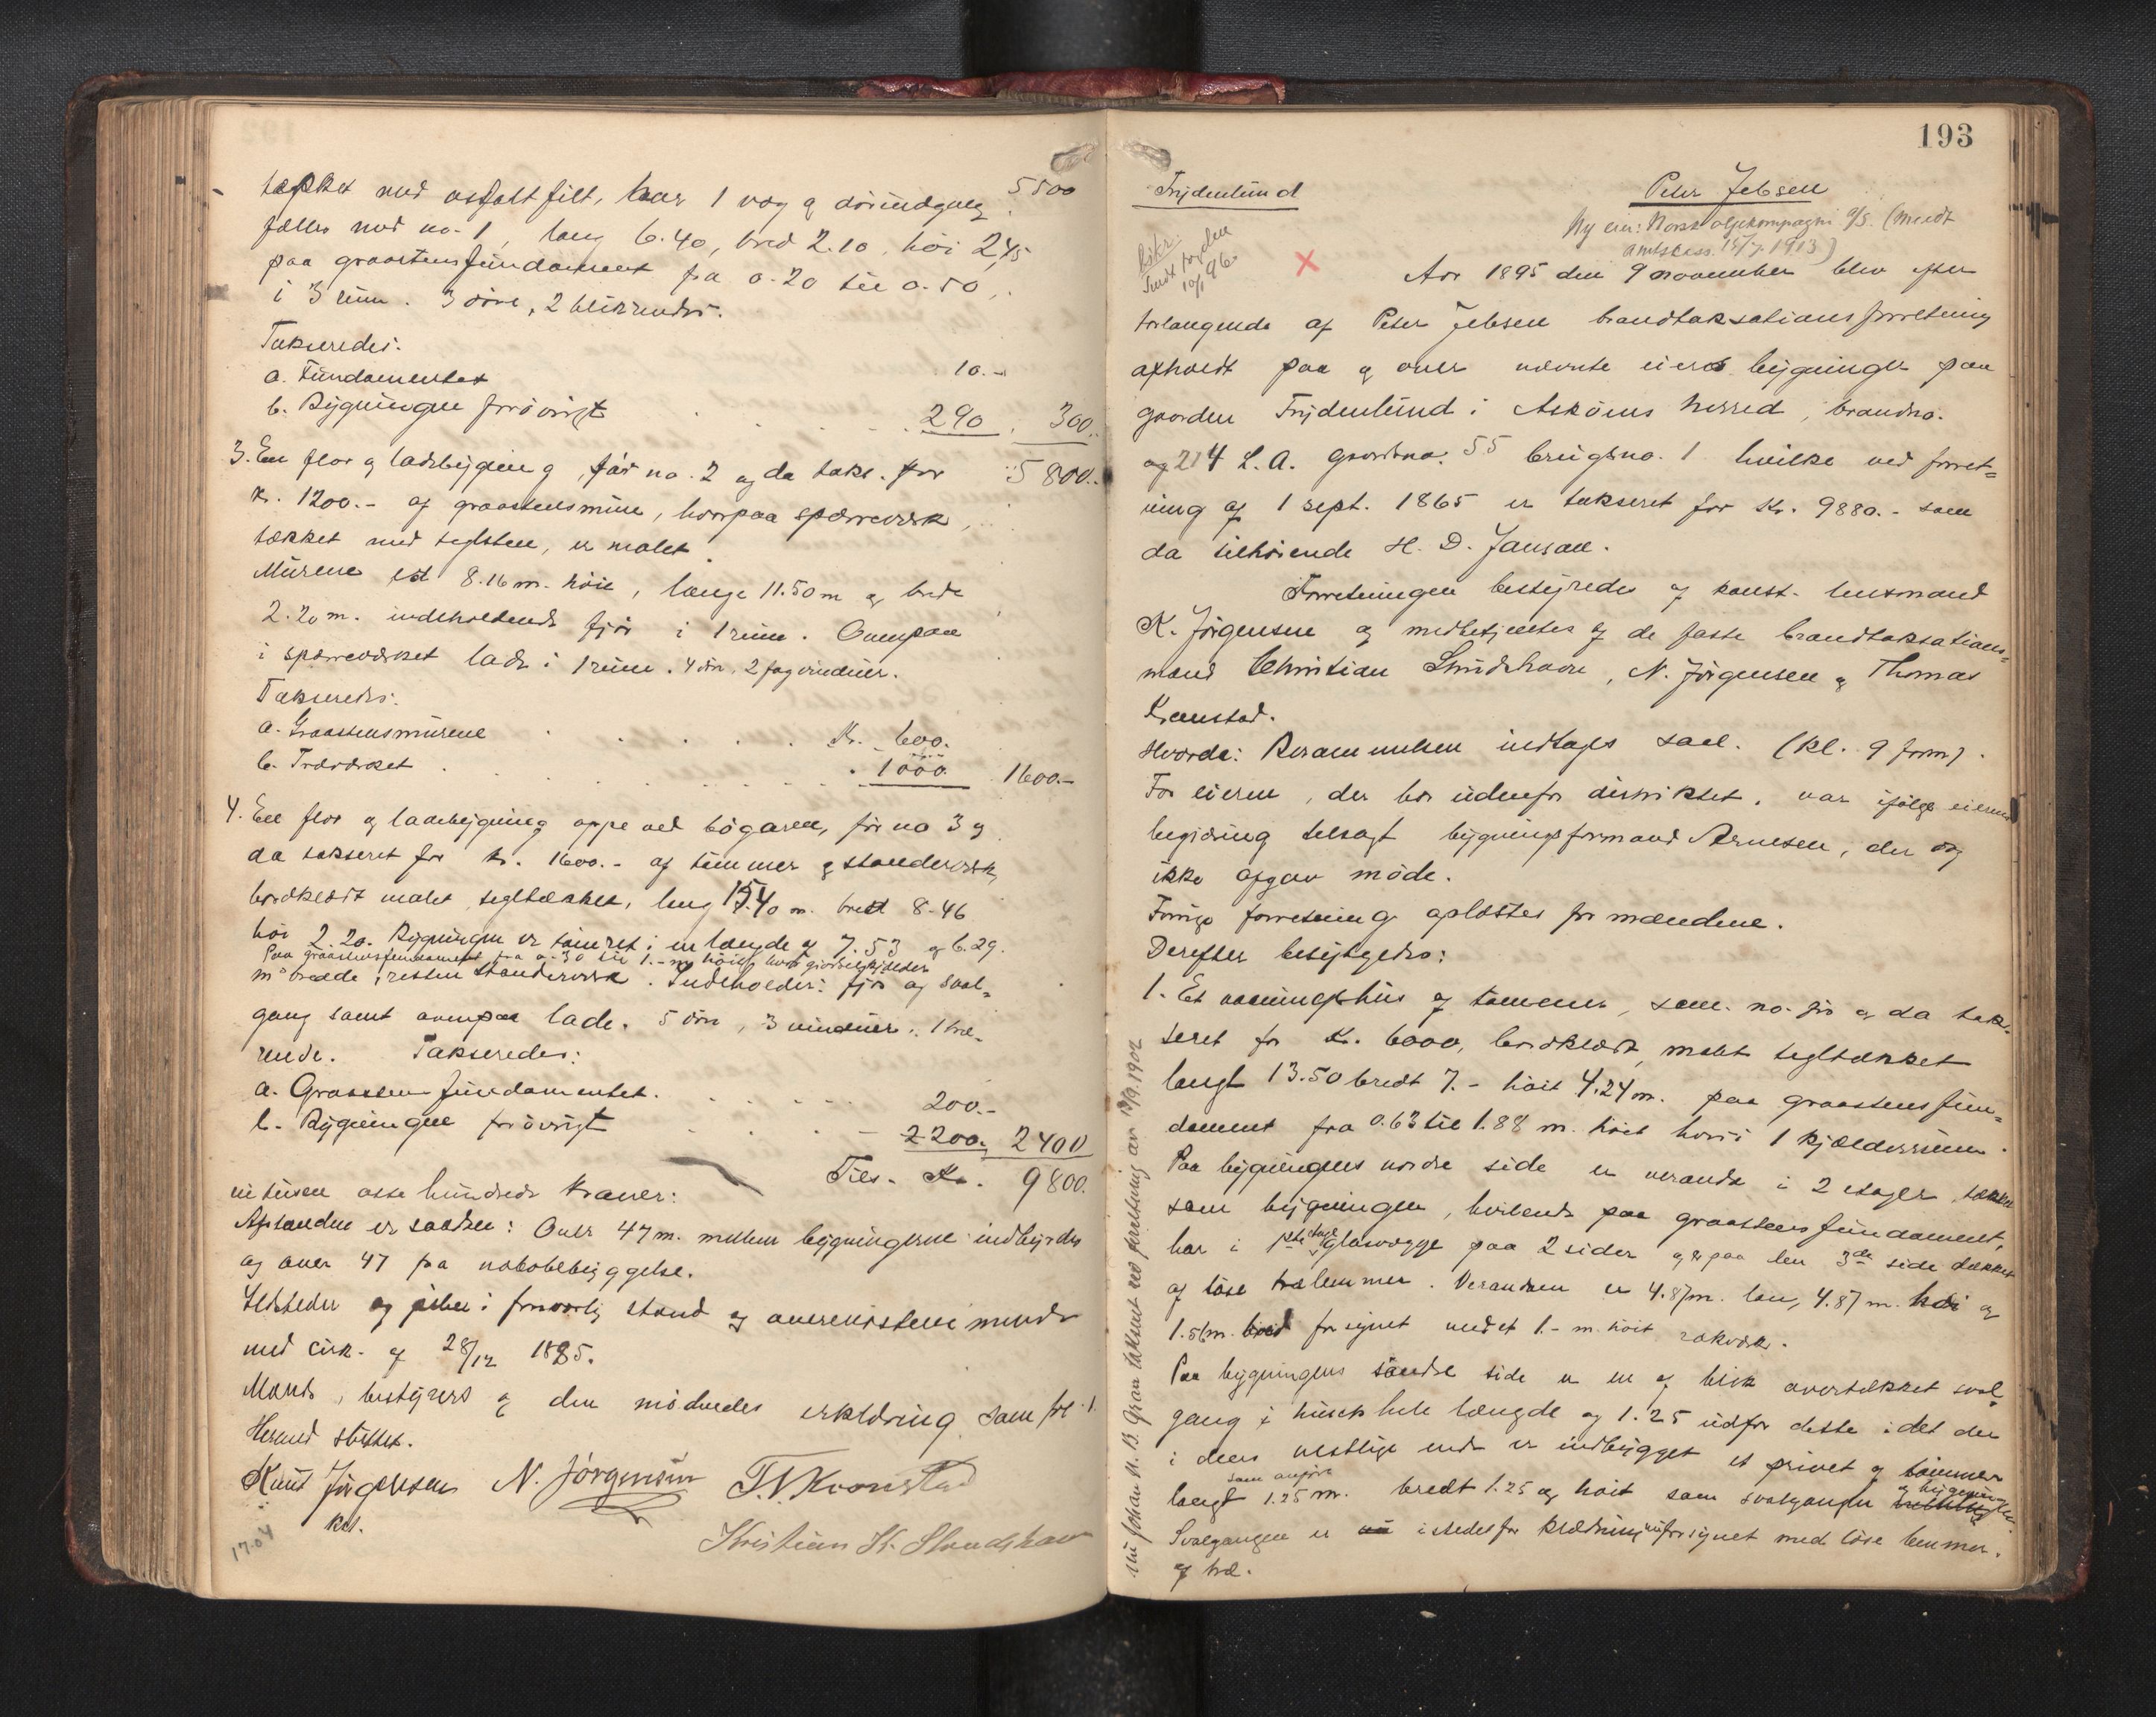 tækket med asfaltfilt, har 1 væg og dörindgang 5500
fælles med no. 1, lang 6.40, bred 2.10, höi 2,45
paa graastensfundament fra 0.20 til 0.50,
i 3 rum. 3 döre, 2 blikrender.
Takseredes:
a. Fundamentet 10.-
b. Bygningen forövrigt 290 300.
3. En flor og ladebygning, för no. 2 og da taks. for 5800.-
kr. 1200.- af graastensmure, hvorpaa sperreværk,
tækket med teglsten, er malet.
Murene 8.16 m. höie, længe 11.50 m og brede
2.20 m. indeholdende fjös i 1 rum. Ovenpaa
i sperreværket lade i 1 rum. 4 dör, 2 fag vinduer.
Takseredes:
a. Graastensmurene Kr. 600.
b. Træværket 1000. 1600.-
4. En flor og ladebygning oppe ved högaren, för no 3 og
da takseret for kr. 1600.- af tömmer & standerværk,
bordklædt malet, tegltækket, lang 15.40 m. bred 8.46
höi 2.20. Bygningen er tömret i en længde af 7.53 og 6.29
Paa graastensfundament fra 0.30 til 1.- m höit, hvori gjödselkjelder
m bredde, resten standerværk. Indeholder: fjös og sval-
gang samt ovenpaa lade. 5 dör, 3 vinduer. 1 træ-
rende. Takseredes:
a. Graastensfundamentet. 200.-
b. Bygningen forövrigt 2200. 2400
Tils. Kr. 9800.
ni tusen otte hundrede kroner:
Afstandene er saadan: Over 47 m. mellem bygningerne indbyrdes
og over 47 fra nabobebyggelse.
Ildsteder og piber i forsvarlig stand og overensstemmende
med cirk. af 28/12 1885.
Mænds, bestyrers og den mödendes erklæring som fol. 1.
Hermed sluttet.
Knut Jörgensen N. Jörgensen T. N. Kronstad
kst.
Kristian K. Skudshavn
17.04
193
Frydenlund Peter Jebsen
Ny eier: Norsk oljekompagni a/s. (meddt
amtsbess. 15/7. 1913)
Bökr.
Sendt fogden
10/1 96.
Aar 1895 den 9 november blev efter
forlangende af Peter Jebsen brandtaksationsforretning
afholdt paa og over nævnte eiers bygninger paa
gaarden Frydenlund i Asköens herred, brandno.
og 214 L.A. gaardsno. 55 brugsno. 1 hvilke ved forret-
ning af 1 sept. 1865 er takseret for Kr. 9880.- som
da tilhörende H. D. Janson.
Forretningen bestyredes af konst. lensmand
K. Jörgensen og medbetjentes af de faste brandtaksations-
mænd Christian Skudshavn, N. Jörgensen & Thomas
Kronstad.
Hvorda: Berammelsen indtages saal. (kl. 9 form).
For eieren, der bor udenfor distriktet, var ifölge eierens
begjæring tilsagt bygningsformand Arnesen, der dog
ikke afgav möde.
Forrige forretning oplæstes for mændene.
Derefter besigtigedes:
1. Et vaaningshus af tömmer, sam. no. för og da tak-
seret for Kr. 6000, bordklædt, malet tegltækket
langt 13.50 bredt 7.- höit 4.24 m. paa graastensfun-
dament fra 0.63 til 1.88 m. höit hvori 1 kjælderrum.
Paa bygningens nordre side er veranda i 2 etager tækket
som bygningen, hvilende paa graastensfundament,
har i 1ste etage glasvægge paa 2 sider og er paa den 3de side dækket
af löse trælemmer. Verandaen er 4.87 m. lan, 4.87 m. höi og
1.56 m. bred forsynet med et 1.- m. höit rækværk.
Paa bygningens söndre side er en af blik overtækket sval-
gang i husets hele længde og 1.25 udfor dette idet der
i dens vestlige ende er indbygget et privet af tömmer
langt som anfört 1.25 m. bredt 1.25 og höit som svalgangen og bygningen.
Svalgangen er istedetfor klædning forsynet med löse lemmer
af træ.
nu Johan N. B. Gran taksert ved forretning av 19/9.1902